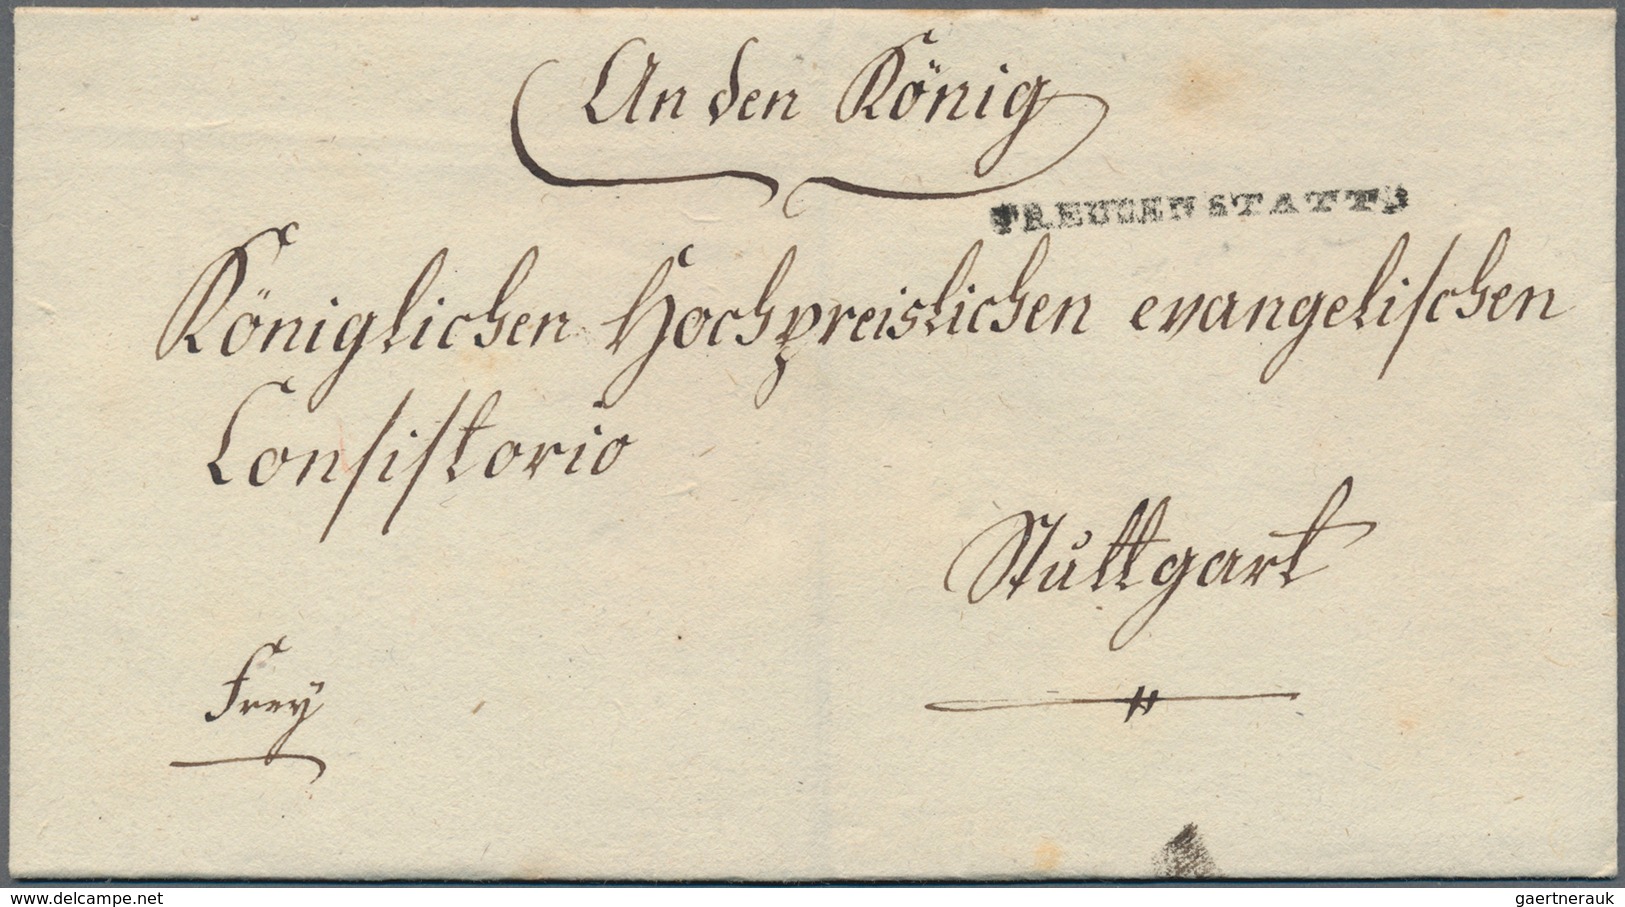 An den König
FREUDENSTATT
Königlichen Hochpreislichen evangelischen
Consistorio
Stŭttgart
frey
delcampe.net
gaertnerauk